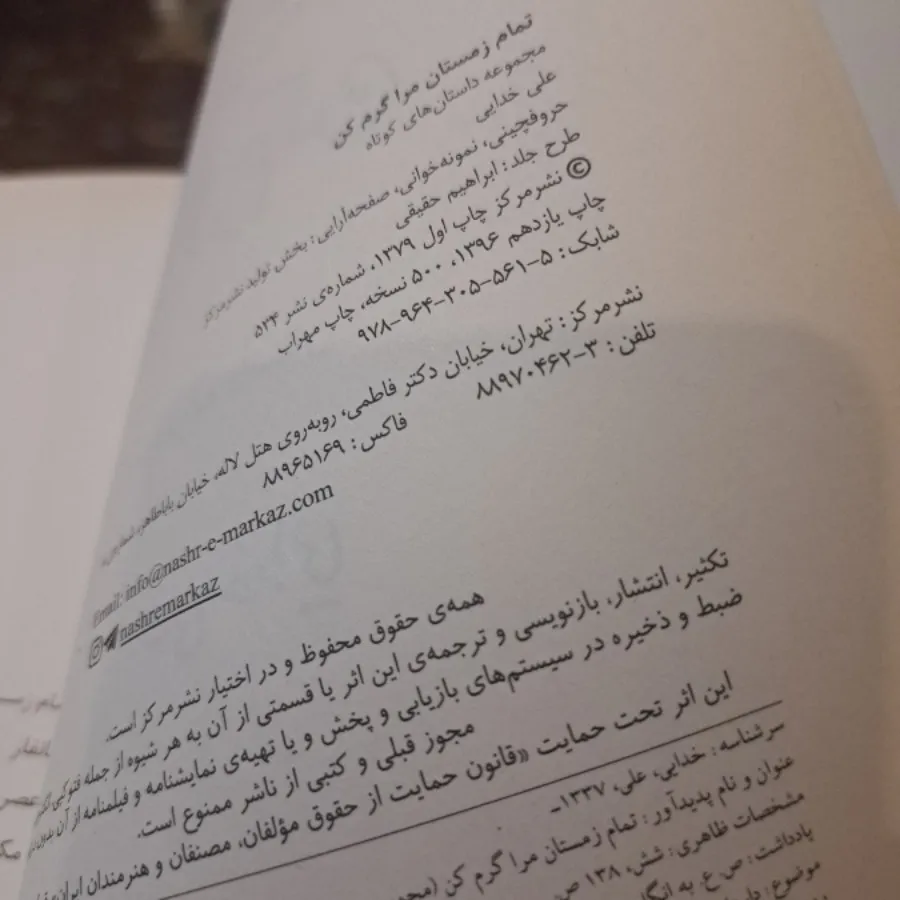 تمام زمستان مرا گرم کن
مجموعه داستان‌های کوتاه
علی خدایی
حروفچینی، نمونه‌خوانی، صفحه‌آرایی: بخش تولید نشرمرکز
طرح جلد: ابراهیم حقیقی
© نشرمرکز چاپ اول ۱۳۷۹، شماره‌ی نشر ۵۳۴
چاپ یازدهم ۱۳۹۶، ۵۰۰ نسخه، چاپ مهراب
شابک: ۵-۵۶۱-۳۰۵-۹۶۴-۹۷۸
نشرمرکز: تهران، خیابان دکتر فاطمی، روبه‌روی هتل لاله، خیابان باباطاهر،
تلفن: ۳-۸۸۹۷۰۴۶۲ فاکس: ۸۸۹۶۵۱۶۹
Email: info@nashr-e-markaz.com
nashremarkaz
همه‌ی حقوق محفوظ و در اختیار نشرمرکز است.
تکثیر، انتشار، بازنویسی و ترجمه‌ی این اثر یا قسمتی از آن به هر شیوه از جمله فتوکپی،
ضبط و ذخیره در سیستم‌های بازیابی و پخش و یا تهیه‌ی نمایشنامه و فیلمنامه از آن بدون
مجوز قبلی و کتبی از ناشر ممنوع است.
این اثر تحت حمایت «قانون حمایت از حقوق مؤلفان، مصنفان و هنرمندان ایران»
سرشناسه: خدایی، علی، ۱۳۳۷ـ
عنوان و نام پدیدآور: تمام زمستان مرا گرم کن
مشخصات ظاهری: شش، ۱۳۸ ص
یادداشت: ص. ع. به
موضوع: